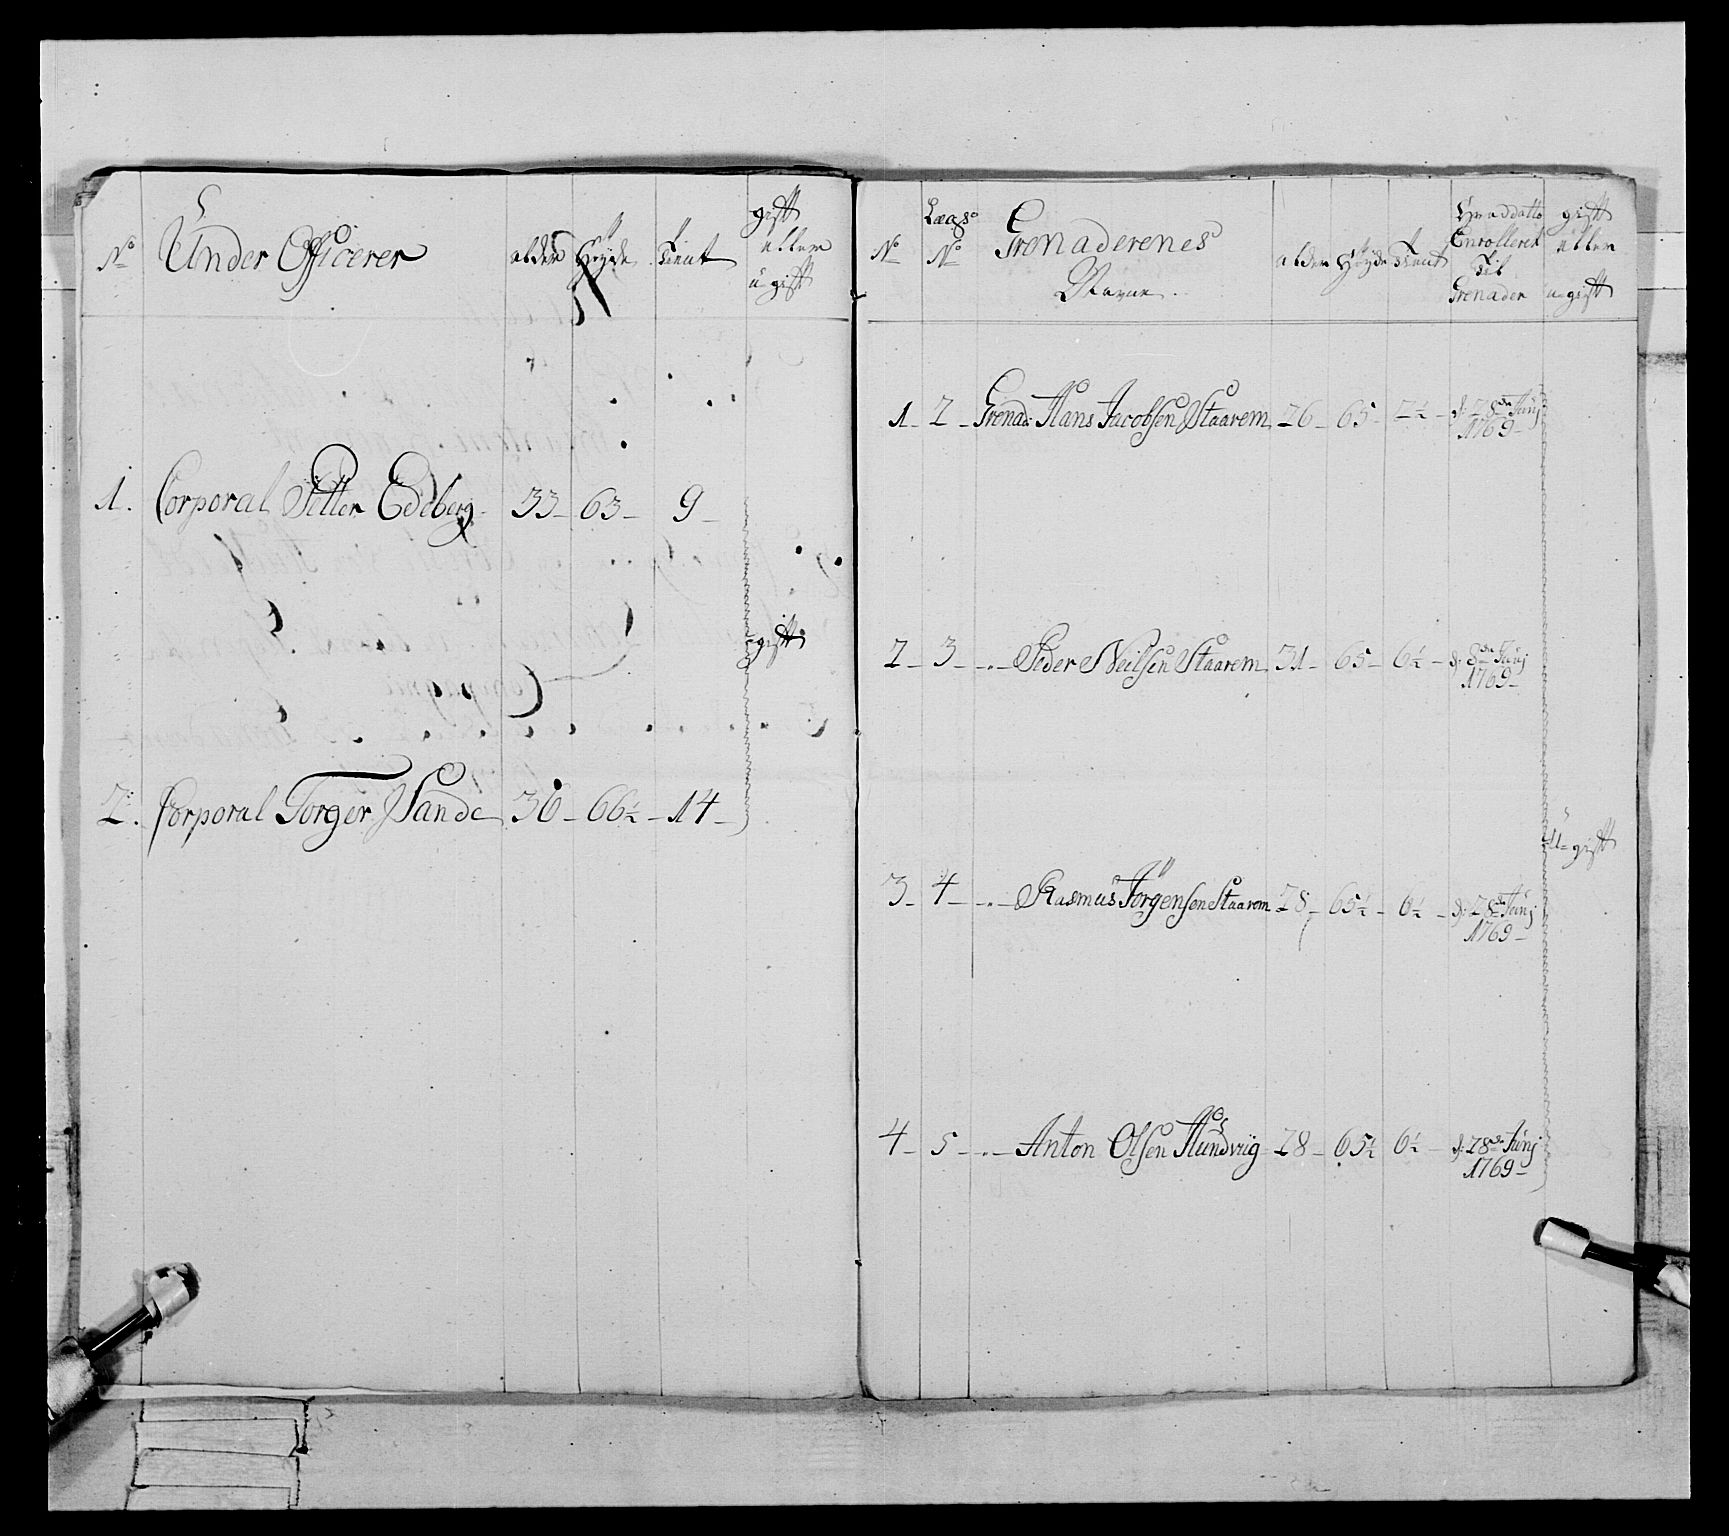 No
Under Officerer
alder
Høyde
Tient
gift
eller
u-gift
1. Corporal Petter Edeberg 33 – 63 – 9 –
gift
2. Corporal Torger Sande 36 – 66½ – 14 –
No
Lægs
No
Grenaderenes
Navne
alder
Høyde
Tient
Hvad datto
Enrolleret
Til
Grenader
gift
eller
u-gift
1 – 2 – Grenad: Hans Jacobsen Staarem 26 – 65 – 2½ – d: 28de Junj
1769 –
2 – 3 – „ – Peder Neilsen Staarem 31 – 65 – 6½ – d: 8de Junj
1769 –
u-gift
3 – 4 – „ – Rasmus Jörgensen Staarem 28 – 65½ – 6½ – d: 28de Junj
1769 –
4 – 5 – „ – Anton Olsen Hundviig 28 – 65½ 6½ – d: 28de Junj
1769 –